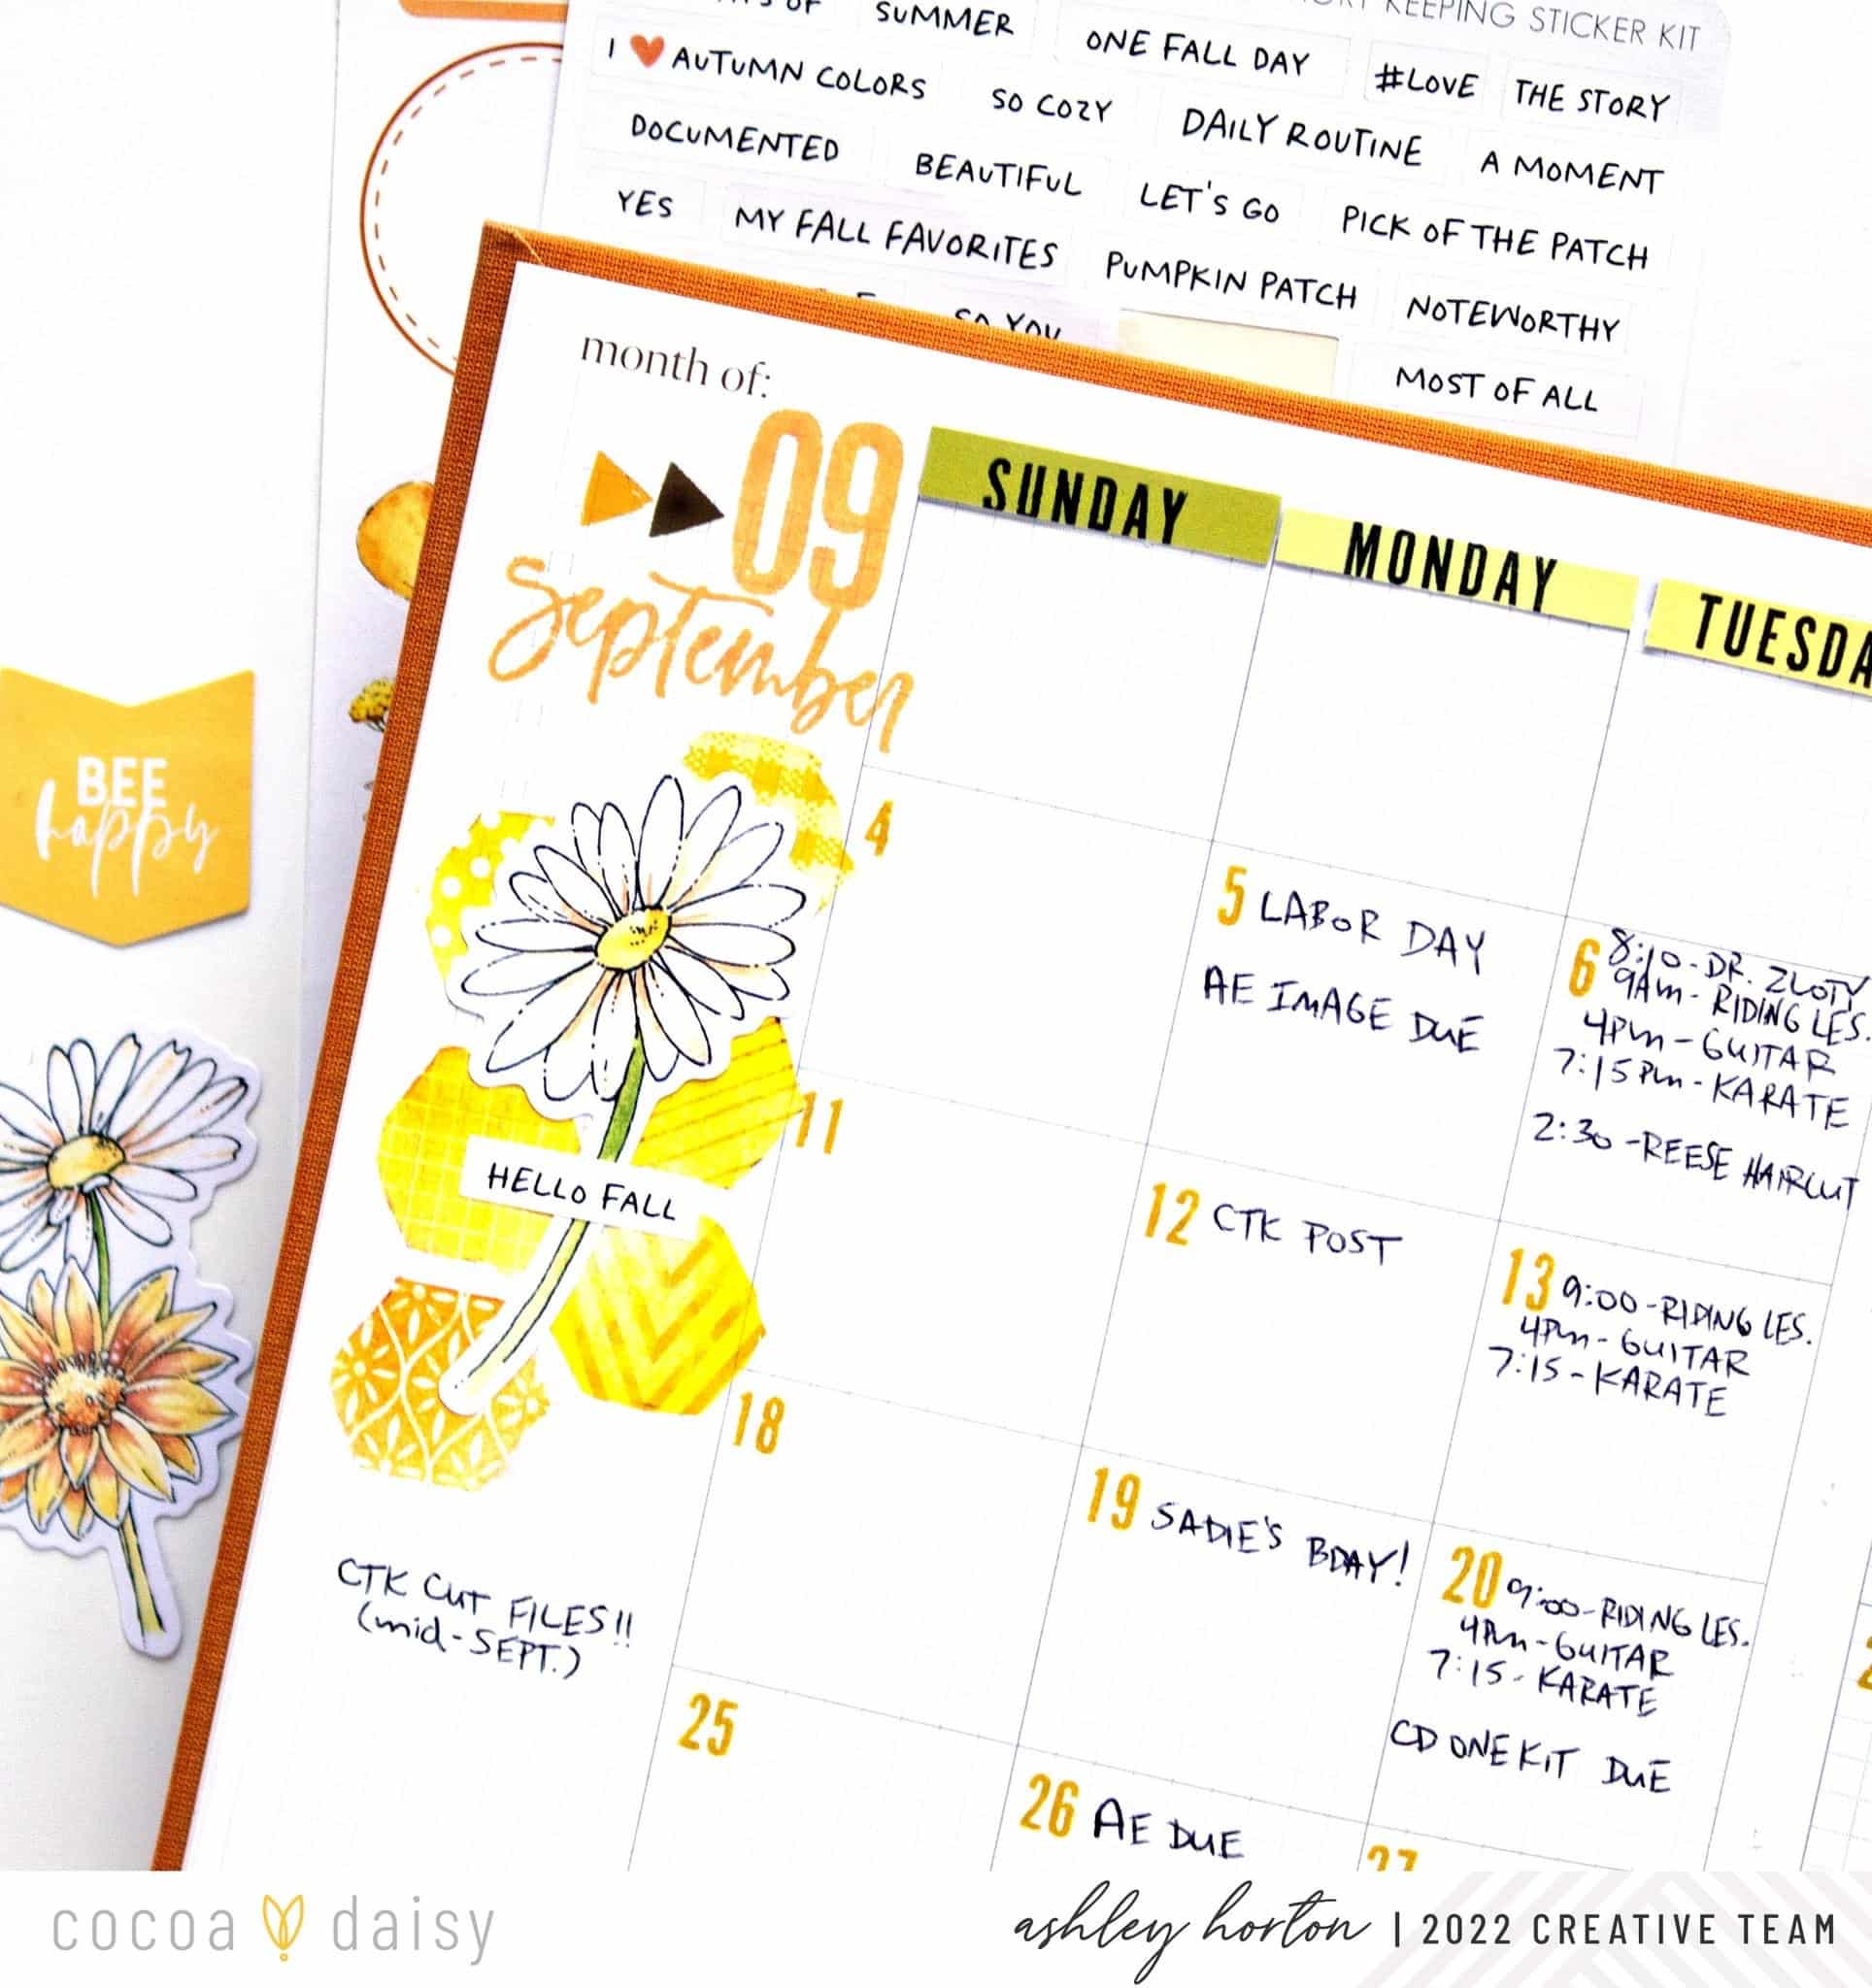 SUMMER
ONE FALL DAY
KEEPING STICKER KIT
I ❤ AUTUMN COLORS
SO COZY
#LOVE
THE STORY
DOCUMENTED
BEAUTIFUL
DAILY ROUTINE
A MOMENT
YES
MY FALL FAVORITES
LET'S GO
PICK OF THE PATCH
PUMPKIN PATCH
NOTEWORTHY
SO YOU
MOST OF ALL
month of:
09
September
SUNDAY
MONDAY
TUESDA
BEE
happy
4
5 LABOR DAY
AE IMAGE DUE
6 8:10-DR. ZLOTV
9AM-RIDING LES.
4PM-GUITAR
7:15PM-KARATE
2:30-REESE HAIRCUT
HELLO FALL
11
12 CTK POST
13 9:00-RIDING LES.
4PM-GUITAR
7:15-KARATE
18
19 SADIE'S BDAY!
20 9:00-RIDING LES.
4PM-GUITAR
7:15-KARATE
CD ONE KIT DUE
CTK CUT FILES!!
(mid-SEPT.)
25
26 AE DUE
27
cocoa daisy
ashley horton | 2022 CREATIVE TEAM